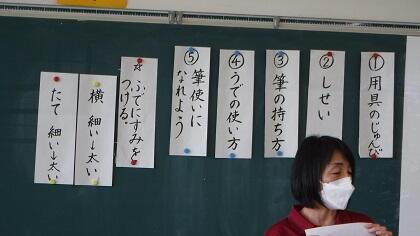 ① 用具のじゅんび
② しせい
③ 筆の持ち方
④ うでの使い方
⑤ 筆使いになれよう
☆ ふでにすみをつける。
横 細い→太い
たて 細い→太い